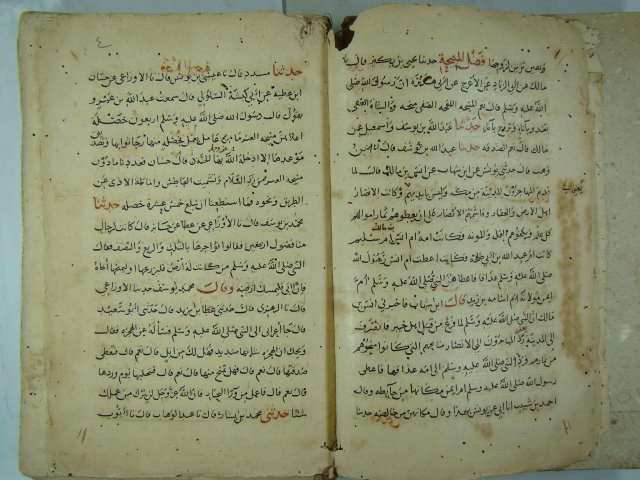 فضل المنيحة حدثنا يحيى بن بكير قال نا
مالك عن ابي الزناد عن الاعرج عن ابي هريرة ان رسول الله صلى
الله عليه وسلم قال نعم المنيحة اللقحة الصفي منحة والشاة الصفي
تغدو باناء وتروح باناء حدثنا عبد الله بن يوسف واسمعيل عن
مالك قال نعم الصدقة حدثنا عبد الله بن يوسف قال نا ابن
وهب قال حدثني يونس عن ابن شهاب عن انس بن مالك قال لما
قدم المهاجرون المدينة من مكة وليس بايديهم وكانت الانصار
اهل الارض والعقار وقاسمهم الانصار على ان يعطوهم ثمار اموالهم
كل عام ويكفوهم العمل والمونة وكانت امه ام انس ام سليم
كانت ام عبد الله بن ابي طلحة فكانت اعطت ام انس رسول الله
صلى الله عليه وسلم عذاقا فاعطاهن النبي صلى الله عليه وسلم ام
ايمن مولاته ام اسامة بن زيد قال ابن شهاب فاخبرني انس بن
مالك ان النبي صلى الله عليه وسلم لما فرغ من قتل اهل خيبر فانصرف
الى المدينة رد المهاجرون الى الانصار منايحهم التي كانوا منحوهم
من ثمارهم ورد النبي صلى الله عليه وسلم الى امه عذاقها فاعطى
رسول الله صلى الله عليه وسلم ام ايمن مكانهن من حايطه وقال
احمد بن شبيب انا ابي عن يونس بهذا وقال مكانهن من خالصه حدثنا
حدثنا مسدد قال نا عيسى بن يونس قال نا الاوزاعي عن حسان
ابن عطية عن ابي كبشة السلولي قال سمعت عبد الله بن عمرو
يقول قال رسول الله صلى الله عليه وسلم اربعون خصلة
اعلاهن منيحة العنز ما من عامل يعمل بخصلة منها رجاء ثوابها وتصديق
موعدها الا ادخله الله بها الجنة قال حسان فعددنا ما دون
منيحة العنز من رد السلام وتشميت العاطس واماطة الاذى عن
الطريق ونحوه فما استطعنا ان نبلغ خمس عشرة خصلة حدثنا
محمد بن يوسف قال نا الاوزاعي عن عطا عن جابر قال كانت لرجال
منا فضول ارضين فقالوا نواجرها بالثلث والربع والنصف فقال
النبي صلى الله عليه وسلم من كانت له ارض فليزرعها او ليمنحها اخاه
فان ابى فليمسك ارضه وقال محمد بن يوسف حدثنا الاوزاعي
قال نا الزهري قال حدثني عطا بن يزيد قال حدثني ابو سعيد
قال جا اعرابي الى النبي صلى الله عليه وسلم فساله عن الهجرة فقال
ويحك ان الهجرة شانها شديد فهل لك من ابل قال نعم قال فتعطي
صدقتها قال نعم قال فهل تمنح منها قال نعم قال فتحلبها يوم وردها
قال نعم قال فاعمل من ورا البحار فان الله عز وجل لن يترك من عملك
شيا حدثني محمد بن بشار قال نا عبد الوهاب قال نا ايوب